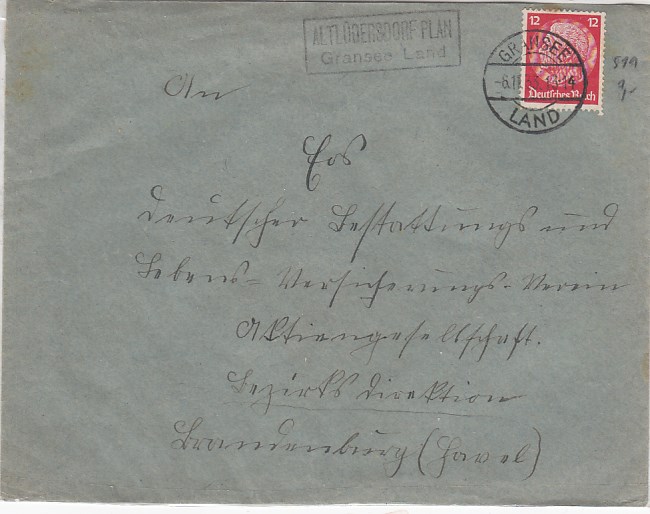 ALTLÜDERSDORF PLAN
Gransee Land
12 12
Deutsches Reich
GRANSEE
-6.11.
LAND
An
Eos
Deutscher Bestattungs und
Lebens-Versicherungs-Verein
Aktiengesellschaft.
Bezirksdirektion
Brandenburg (Havel)